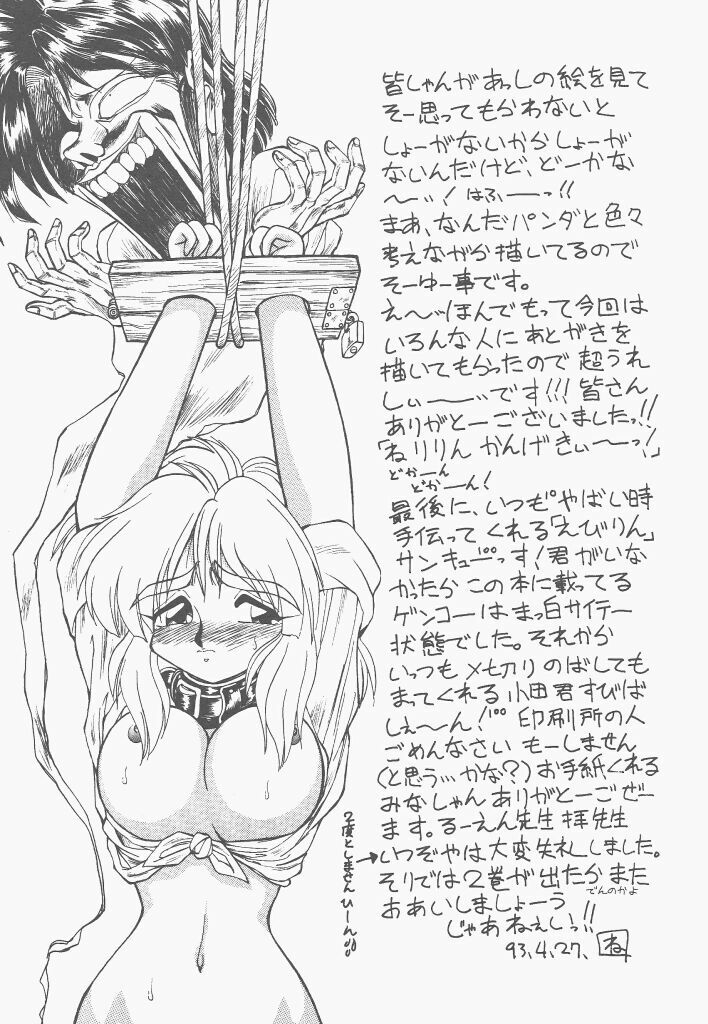 皆しゃんがあっしの絵を見て
そー思ってもらわないと
しょーがないからしょーが
ないんだけど、どーかな
〜ッ! はふーーっ!!
まあ、なんだパンダと色々
考えながら描いてるので
そーゆー事です。
え〜ッほんでもって今回は
いろんな人にあとがきを
描いてもらったので超うれ
しぃーーッです!!! 皆さん
ありがとーございましたっ!!
「ねりりん かんげきぃーーっ!」
どかーん
どかーん!
最後に、いつもやばい時
手伝ってくれる「えびりん」
サンキューっす! 君がいな
かったらこの本に載ってる
ゲンコーはまっ白サイテー
状態でした。それから
いっつも〆切りのばしても
まってくれる小田君すびば
しぇ〜ん! 印刷所の人
ごめんなさい もーしません
(と思う…かな?)お手紙くれる
みなしゃんありがとーごぜー
ます。るーえん先生 拝先生
いつぞやは大変失礼しました。
そりでは2巻が出たらまた
でんのかよ
おあいしましょーう
じゃあねぇしっ!!
93.4.27、ね
2度としまさんひーん